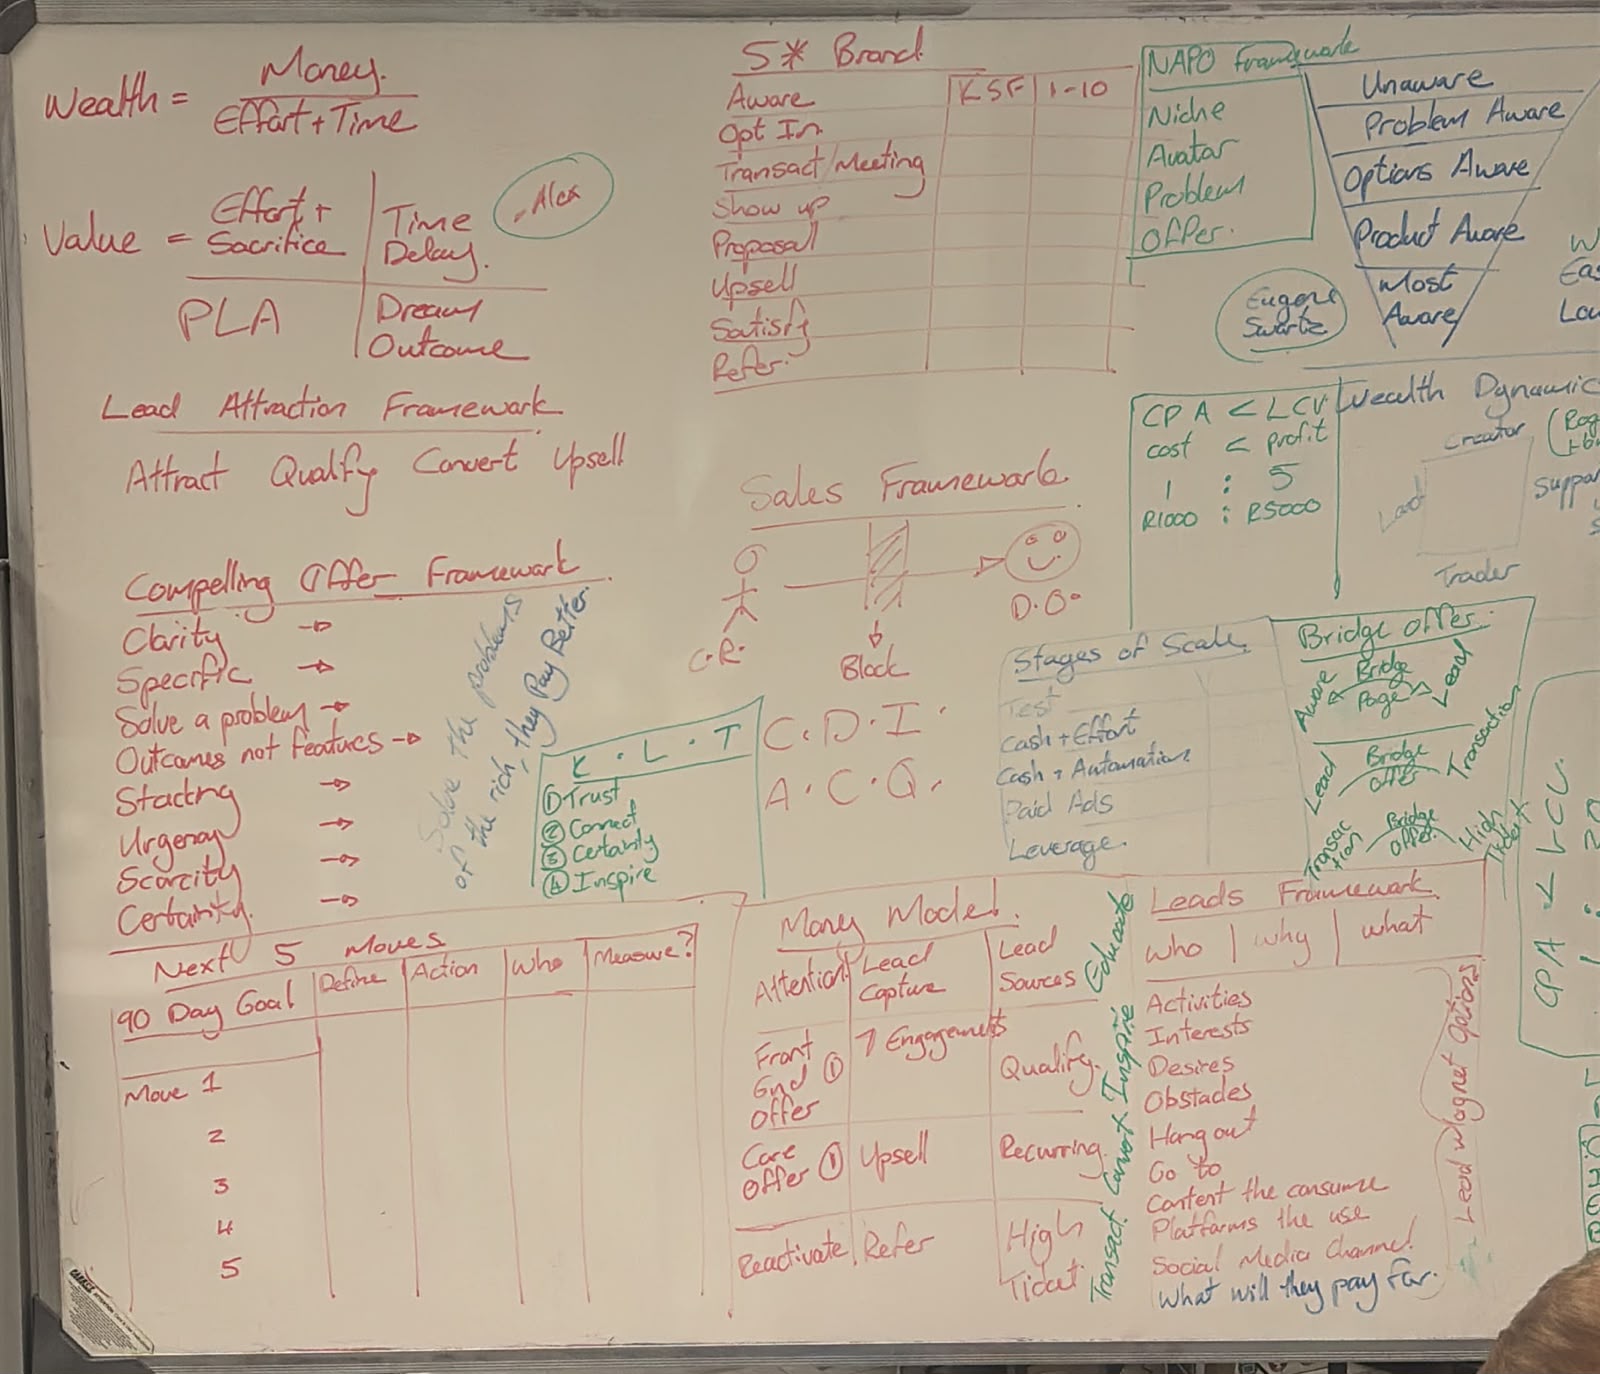 Wealth = Money.
Effort + Time
Value = Effort + Sacrifice
Time Delay.
PLA
Dream Outcome
Alex
Lead Attraction Framework
Attract Qualify Convert Upsell
Compelling Offer Framework
Clarity →
Specific →
Solve a problem →
Outcomes not features →
Stacking →
Urgency →
Scarcity →
Certainity. →
Solve the problems
of the rich, they Pay Better.
K.L.T
① Trust
② Connect
③ Certainity
④ Inspire
Next 5 Moves
90 Day Goal | Define | Action | Who | Measure?
Move 1
2
3
4
5
5* Brand
KSF | 1-10
Aware
Opt In
Transact/Meeting
Show up
Proposal
Upsell
Satisfy
Refer.
Sales Framework.
C.R.
Block
D.O.
C.D.I.
A.C.Q.
NAPO Framework
Niche
Avatar
Problem
Offer.
Unaware
Problem Aware
Options Aware
Product Aware
Most
Aware
Eugene
Swartz
CPA < LCV
cost < profit
1 : 5
R1000 : R5000
Wealth Dynamic
Creator
Lord
Trader
Stages of Scale
Test
Cash + Effort
Cash + Automation
Paid Ads
Leverage.
Bridge offer.
Aware Bridge Page Lead
Lead Bridge offer Transaction
Transaction Bridge offer. High Ticket
Money Model.
Attention | Lead Capture | Lead Sources
Front End Offer ① | 7 Engagements | Qualify.
Core Offer ① | Upsell | Recurring.
Reactivate | Refer | High Ticket.
Transact Convert Inspire Educate
Leads Framework
who | why | what
Activities
Interests
Desires
Obstacles
Hang out
Go to
Content the consume
Platforms the use
Social Media Channel
What will they pay for.
Lead Magnet Options
CPA < LCV